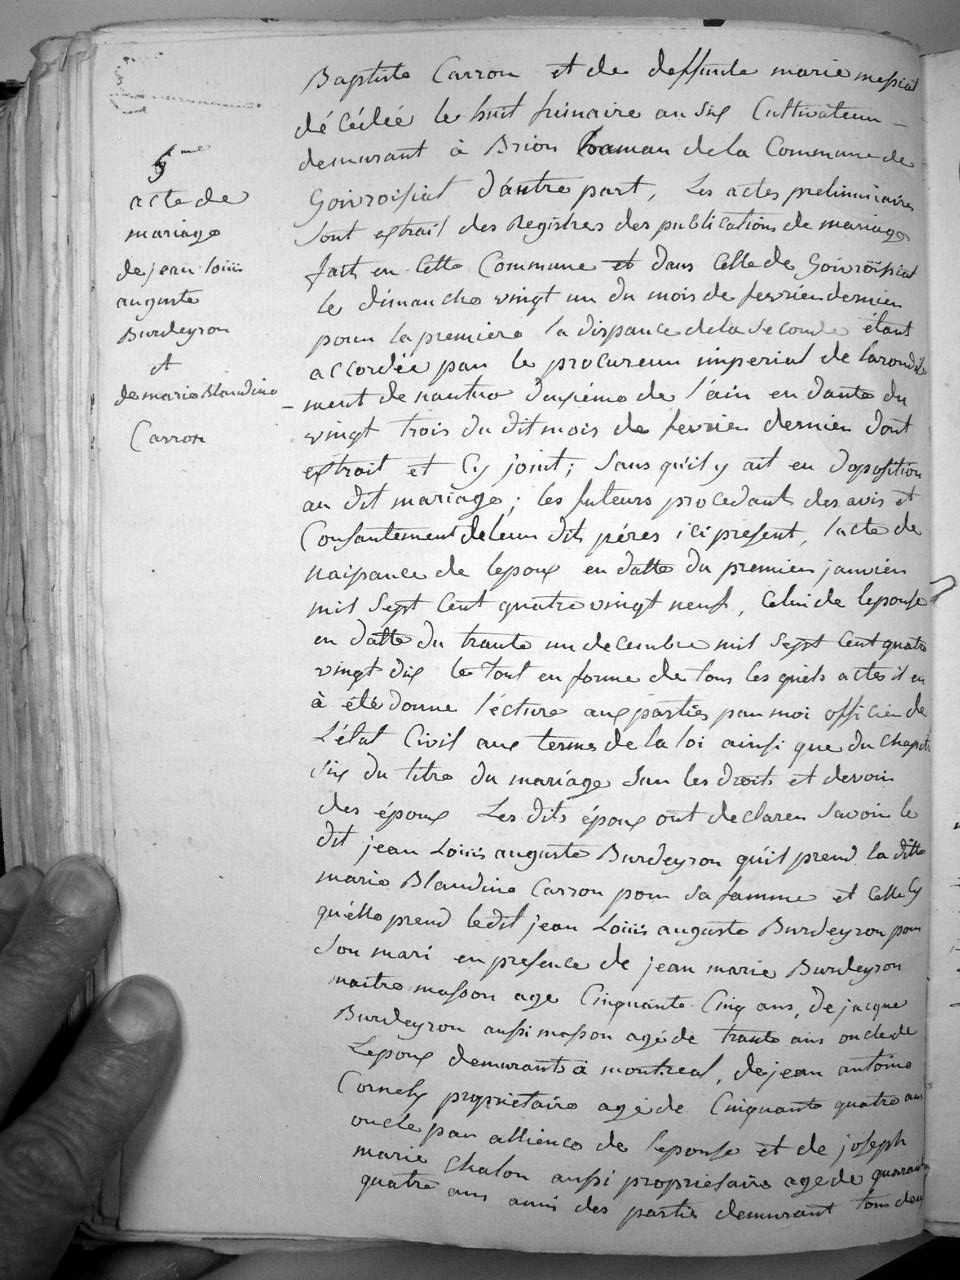 5me
acte de
mariage
de jean louis
auguste
Burdeyron
et
de marie Blandine
Carron
Baptiste Carron et de deffunte marie messiat
décédée le huit frimaire an six Cultivateur
demurant à Brion hamau de la Commune de
Goivroissiat d'autre part, Les actes preliminaires
sont extrait des Registres des publications de mariage
fait en Cette Commune et dans Celle de Goivroissiat
le dimanche vingt un du mois de fevrier dernier
pour la premiere la dispance de la seconde étant
accordée par le procureur imperial de larondis
ment de nantua duxiéme de l'ain en datte du
vingt trois du dit mois de fevrier dernier dont
extrait et Cy joint; sans qu'il y ait eu doposition
au dit mariage; les futeurs procedant des avis et
Consantement de leur dits péres ici present, lacte de
naissance de lepoux en datte du premier janvier
mil sept Cent quatre vingt neuf, Celui de lepouse
en datte du trante un decembre mil sept Cent quatre
vingt dix le tout en forme de tous les quels actes il en
à été donne lécture aux parties par moi officier de
L'état Civil aux termes de la loi ainsi que du Chapitre
six du titre du mariage sur les droits et devoir
des époux Les dits époux ont declarer savoir le
dit jean Louis auguste Burdeyron qu'il prend la ditte
marie Blandine Carron pour sa famme et Celle Cy
qu'elle prend ledit jean Louis auguste Burdeyron pour
son mari en presence de jean marie Burdeyron
maitre masson age Cinquante Cinq ans, de jacque
Burdeyron aussi masson agé de trante ans oncle de
Lepoux demurants à montreal, de jean antoine
Cornely propriétaire agé de Cinquante quatre ans
oncle par allience de lepouse et de joseph
marie Chalon aussi propriétaire age de quarante
quatre ans amis des partie demurant tous deux